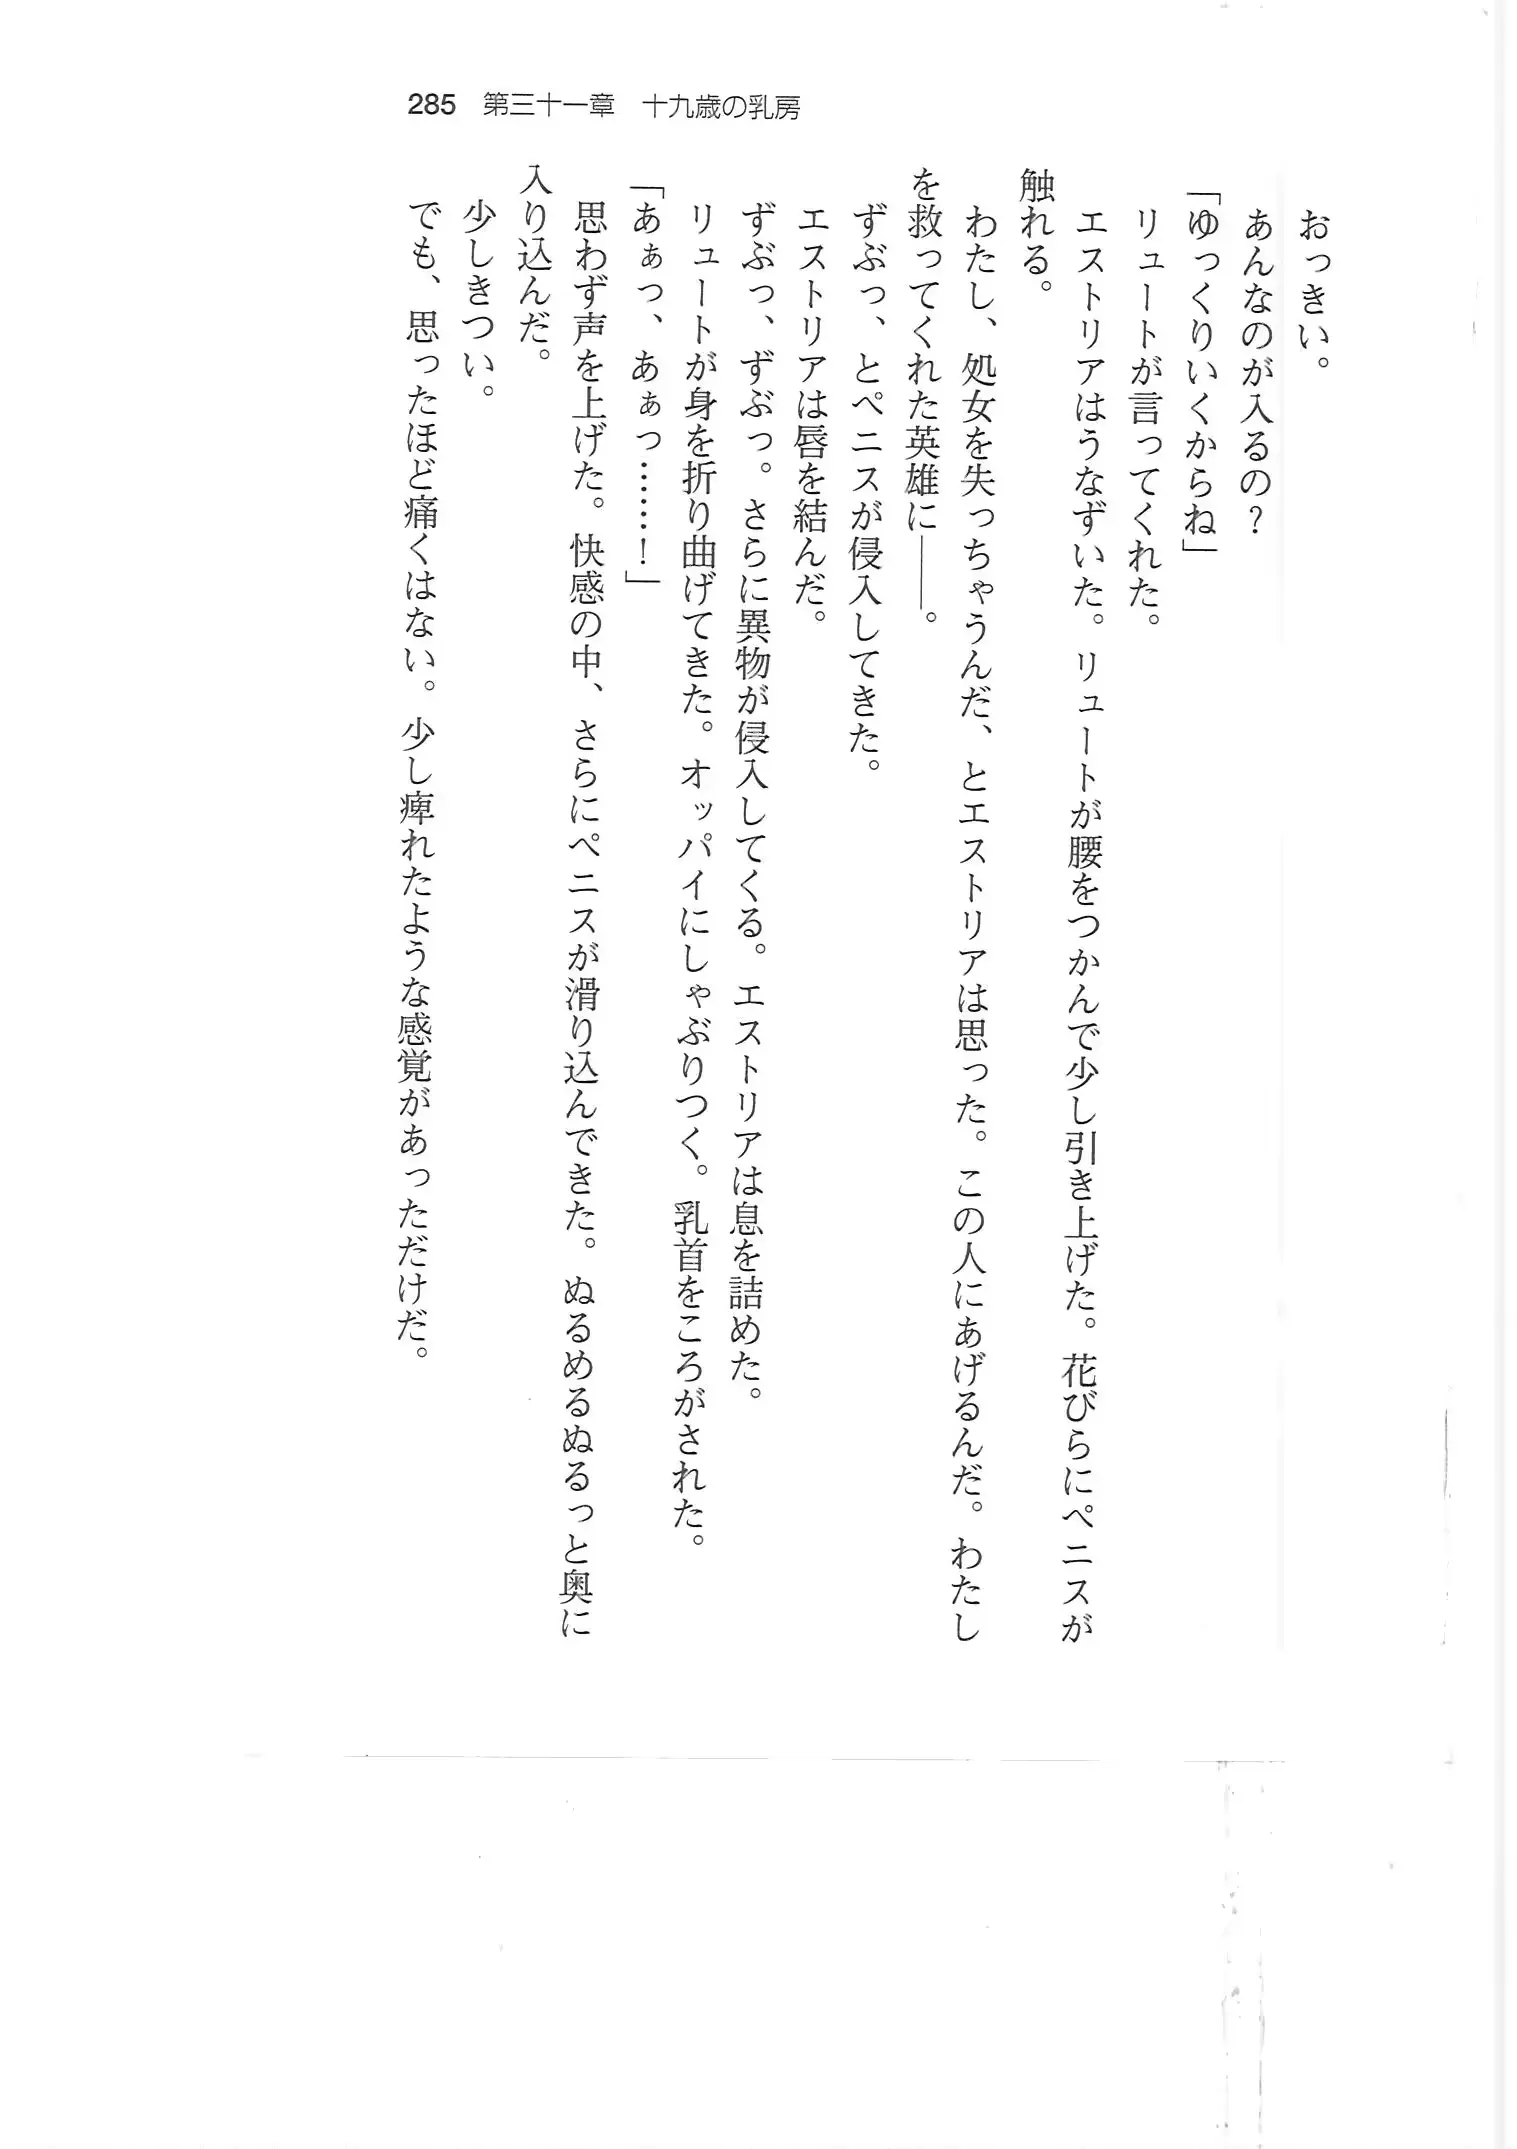 285 第三十一章 十九歳の乳房
おっきい。
あんなのが入るの?
「ゆっくりいくからね」
リュートが言ってくれた。
エストリアはうなずいた。リュートが腰をつかんで少し引き上げた。花びらにペニスが
触れる。
わたし、処女を失っちゃうんだ、とエストリアは思った。この人にあげるんだ。わたし
を救ってくれた英雄に――。
ずぶっ、とペニスが侵入してきた。
エストリアは唇を結んだ。
ずぶっ、ずぶっ。さらに異物が侵入してくる。エストリアは息を詰めた。
リュートが身を折り曲げてきた。オッパイにしゃぶりつく。乳首をころがされた。
「あぁっ、あぁっ……!」
思わず声を上げた。快感の中、さらにペニスが滑り込んできた。ぬるめるぬるっと奥に
入り込んだ。
少しきつい。
でも、思ったほど痛くはない。少し痺れたような感覚があっただけだ。